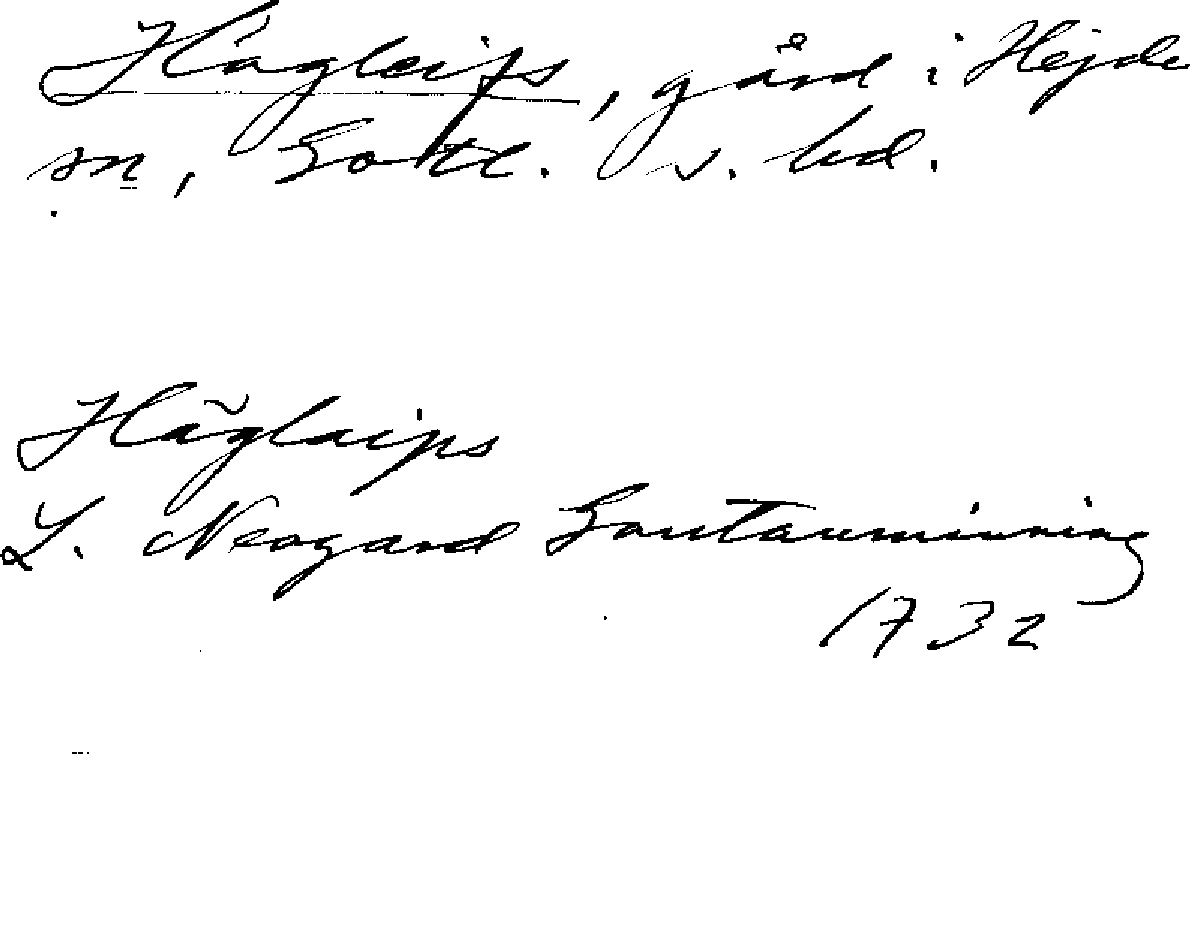 Hågleips, gård i Hejde
sn, Gotl. v. hd.
Hãglaips
L. Neogard Gautauminning
1732